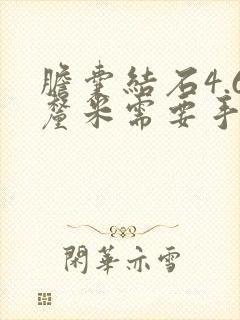 膽囊結石4.6
釐米需要手
閑華亦雪